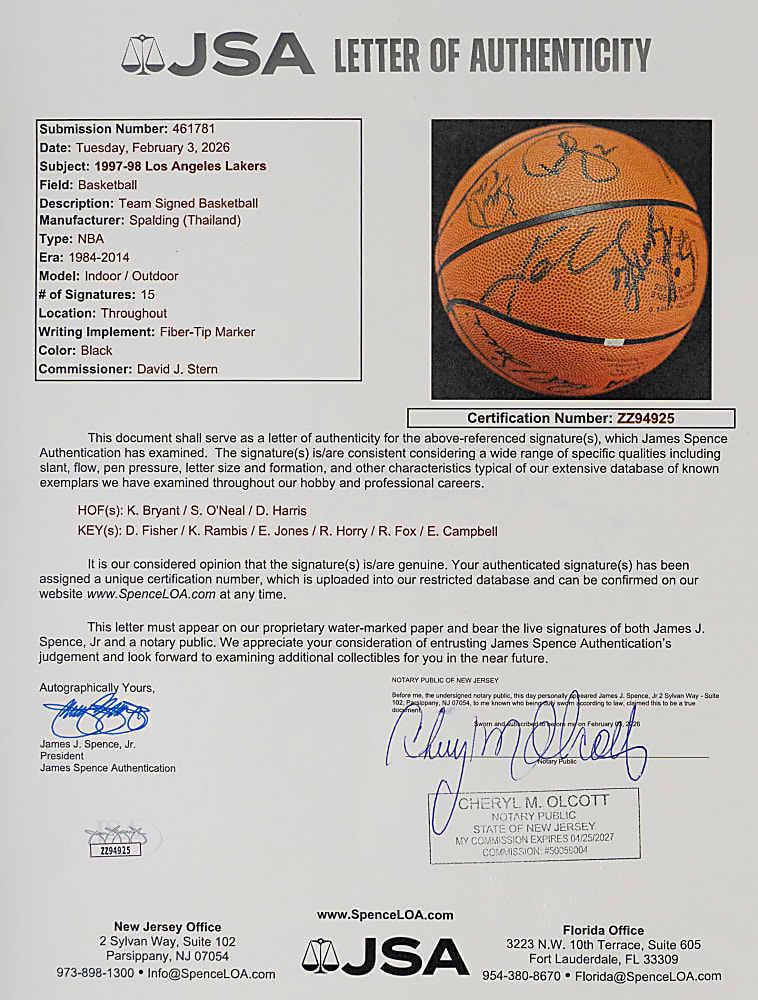 JSA LETTER OF AUTHENTICITY
Submission Number: 461781
Date: Tuesday, February 3, 2026
Subject: 1997-98 Los Angeles Lakers
Field: Basketball
Description: Team Signed Basketball
Manufacturer: Spalding (Thailand)
Type: NBA
Era: 1984-2014
Model: Indoor / Outdoor
# of Signatures: 15
Location: Throughout
Writing Implement: Fiber-Tip Marker
Color: Black
Commissioner: David J. Stern
Certification Number: ZZ94925
This document shall serve as a letter of authenticity for the above-referenced signature(s), which James Spence
Authentication has examined. The signature(s) is/are consistent considering a wide range of specific qualities including
slant, flow, pen pressure, letter size and formation, and other characteristics typical of our extensive database of known
exemplars we have examined throughout our hobby and professional careers.
HOF(s): K. Bryant / S. O'Neal / D. Harris
KEY(s): D. Fisher / K. Rambis / E. Jones / R. Horry / R. Fox / E. Campbell
It is our considered opinion that the signature(s) is/are genuine. Your authenticated signature(s) has been
assigned a unique certification number, which is uploaded into our restricted database and can be confirmed on our
website www.SpenceLOA.com at any time.
This letter must appear on our proprietary water-marked paper and bear the live signatures of both James J.
Spence, Jr and a notary public. We appreciate your consideration of entrusting James Spence Authentication's
judgement and look forward to examining additional collectibles for you in the near future.
Autographically Yours,
James J. Spence, Jr.
President
James Spence Authentication
NOTARY PUBLIC OF NEW JERSEY
Before me, the undersigned notary public, this day personally appeared James J. Spence, Jr 2 Sylvan Way - Suite
102, Parsippany, NJ 07054, to me known who being duly sworn according to law, claimed this to be a true
document.
Sworn and subscribed to before me on February 03, 2026
Cheryl M Olcott
Notary Public
CHERYL M. OLCOTT
NOTARY PUBLIC
STATE OF NEW JERSEY
MY COMMISSION EXPIRES 04/25/2027
COMMISSION: #50059004
ZZ94925
www.SpenceLOA.com
New Jersey Office
2 Sylvan Way, Suite 102
Parsippany, NJ 07054
973-898-1300 • Info@SpenceLOA.com
JSA
Florida Office
3223 N.W. 10th Terrace, Suite 605
Fort Lauderdale, FL 33309
954-380-8670 • Florida@SpenceLOA.com